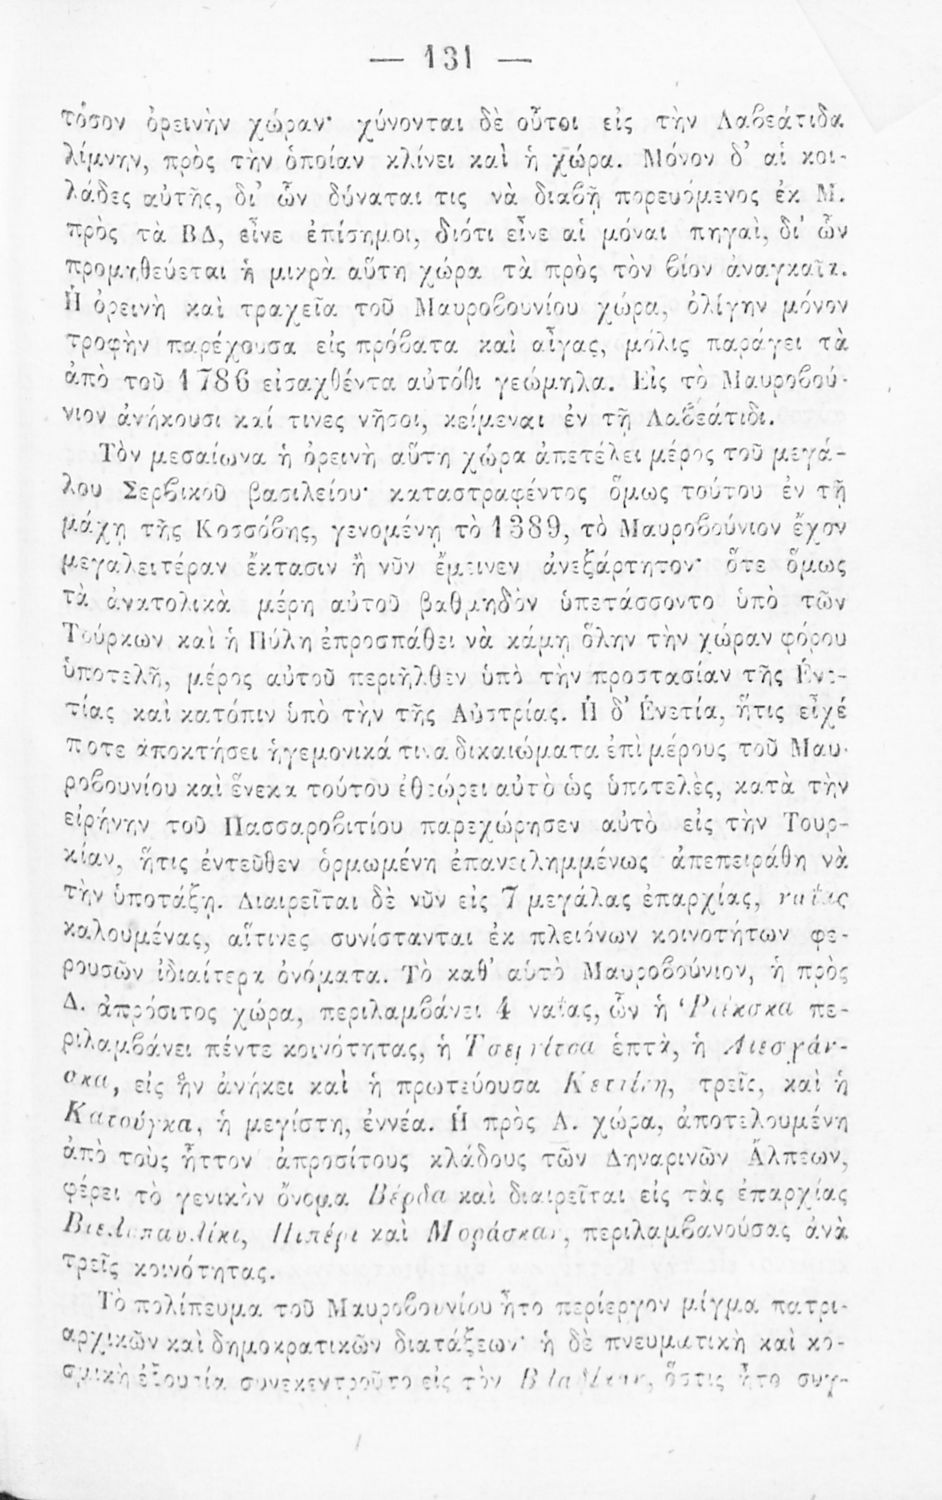 — 131 —
τόσον ὀρεινὴν χώραν· χύνονται δὲ οὗτοι εἰς τὴν Λαβεάτιδα
λίμνην, πρὸς τὴν ὁποίαν κλίνει καὶ ἡ χώρα. Μόνον δ’ αἱ κοι-
λάδες αὐτῆς, δι’ ὧν δύναται τις νὰ διαβῇ πορευόμενος ἐκ Μ.
πρὸς τὰ ΒΔ, εἶνε ἐπίσημοι, διότι εἶνε αἱ μόναι πηγαὶ, δι’ ὧν
προμηθεύεται ἡ μικρὰ αὕτη χώρα τὰ πρὸς τὸν βίον ἀναγκαῖα.
Ἡ ὀρεινὴ καὶ τραχεῖα τοῦ Μαυροβουνίου χώρα, ὀλίγην μόνον
τροφὴν παρέχουσα εἰς πρόβατα καὶ αἶγας, μόλις παράγει τὰ
ἀπὸ τοῦ 1786 εἰσαχθέντα αὐτόθι γεώμηλα. Εἰς τὸ Μαυροβού-
νιον ἀνήκουσι καί τινες νῆσοι, κείμεναι ἐν τῇ Λαβεάτιδι.
Τὸν μεσαίωνα ἡ ὀρεινὴ αὕτη χώρα ἀπετέλει μέρος τοῦ μεγά-
λου Σερβικοῦ βασιλείου· καταστραφέντος ὅμως τούτου ἐν τῇ
μάχῃ τῆς Κοσσόβης, γενομένῃ τὸ 1389, τὸ Μαυροβούνιον ἔχον
μεγαλειτέραν ἔκτασιν ἢ νῦν ἔμεινεν ἀνεξάρτητον· ὅτε ὅμως
τὰ ἀνατολικὰ μέρη αὐτοῦ βαθμηδὸν ὑπετάσσοντο ὑπὸ τῶν
Τούρκων καὶ ἡ Πύλη ἐπροσπάθει νὰ κάμῃ ὅλην τὴν χώραν φόρου
ὑποτελῆ, μέρος αὐτοῦ περιῆλθεν ὑπὸ τὴν προστασίαν τῆς Ἑνε-
τίας καὶ κατόπιν ὑπὸ τὴν τῆς Αὐστρίας. Ἡ δ’ Ἑνετία, ἥτις εἶχέ
ποτε ἀποκτήσει ἡγεμονικά τινα δικαιώματα ἐπὶ μέρους τοῦ Μαυ-
ροβουνίου καὶ ἕνεκα τούτου ἐθεώρει αὐτὸ ὡς ὑποτελὲς, κατὰ τὴν
εἰρήνην τοῦ Πασσαροβιτίου παρεχώρησεν αὐτὸ εἰς τὴν Τουρ-
κίαν, ἥτις ἐντεῦθεν ὁρμωμένη ἐπανειλημμένως ἀπεπειράθη νὰ
τὴν ὑποτάξῃ. Διαιρεῖται δὲ νῦν εἰς 7 μεγάλας ἐπαρχίας, ναΐας
καλουμένας, αἵτινες συνίστανται ἐκ πλειόνων κοινοτήτων φε-
ρουσῶν ἰδιαίτερα ὀνόματα. Τὸ καθ’ αὑτὸ Μαυροβούνιον, ἡ πρὸς
Δ. ἀπρόσιτος χώρα, περιλαμβάνει 4 ναΐας, ὧν ἡ Ῥιέκσκα πε-
ριλαμβάνει πέντε κοινότητας, ἡ Τσερνίτσα ἑπτὰ, ἡ Λιεσγάν-
σκα, εἰς ἣν ἀνήκει καὶ ἡ πρωτεύουσα Κεττίνη, τρεῖς, καὶ ἡ
Κατούγκα, ἡ μεγίστη, ἐννέα. Ἡ πρὸς Α. χώρα, ἀποτελουμένη
ἀπὸ τοὺς ἧττον ἀπροσίτους κλάδους τῶν Δηναρινῶν Ἄλπεων,
φέρει τὸ γενικὸν ὄνομα Βέρδα καὶ διαιρεῖται εἰς τὰς ἐπαρχίας
Βιελοπαυλίκι, Πιπέρι καὶ Μοράσκαν, περιλαμβανούσας ἀνὰ
τρεῖς κοινότητας.
Τὸ πολίτευμα τοῦ Μαυροβουνίου ἦτο περίεργον μίγμα πατρι-
αρχικῶν καὶ δημοκρατικῶν διατάξεων· ἡ δὲ πνευματικὴ καὶ κο-
σμικὴ ἐξουσία συνεκεντροῦτο εἰς τὸν Βλαδίκαν, ὅστις ἦτο συγ-